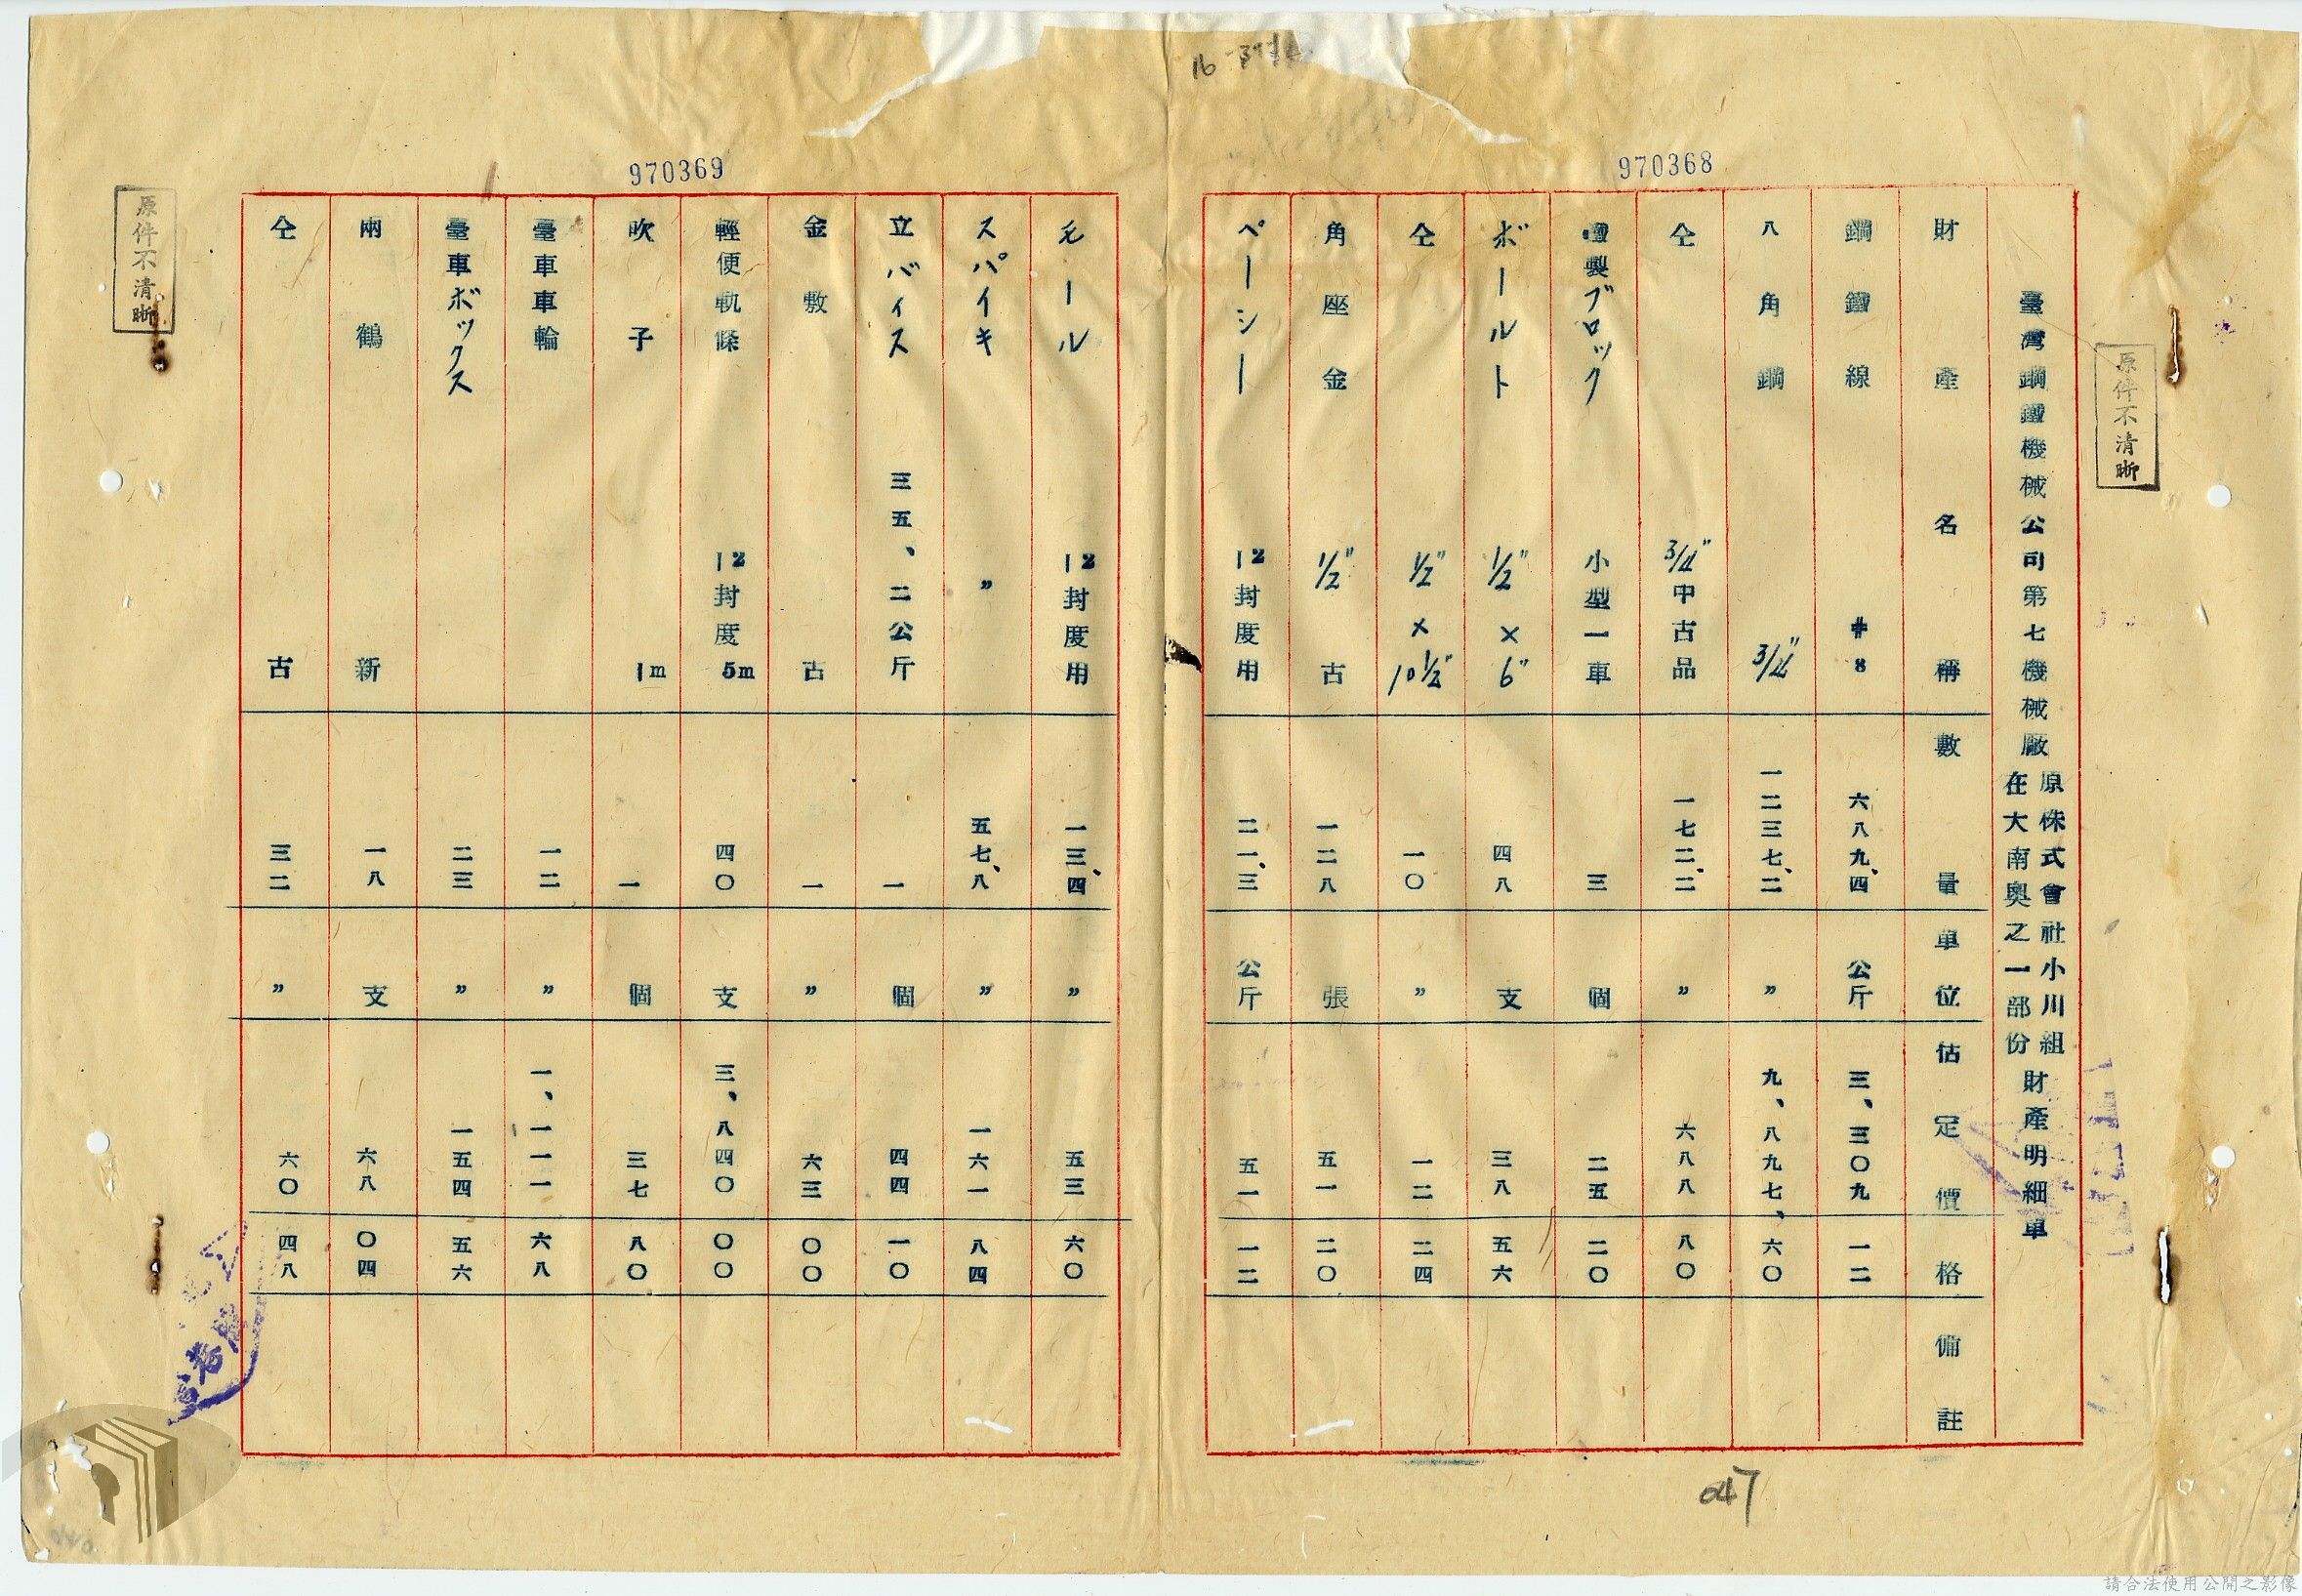 16
970368
原件不清晰
臺灣鋼鐵機械公司第七機械廠 原株式會社小川組 在大南奧之一部份 財產明細單
財產名稱 數量 單位 估定價格 備註
鋼鐵線 #8 六八九、四 公斤 三、三〇九 一二
八角鋼 3/4" 一二三七、二 〃 九、八九七、六〇
仝 3/4"中古品 一七二、二 〃 六八八 八〇
鐵製ブロック 小型一車 三 個 二五 二〇
ボールト 1/2"×6" 四八 支 三八 五六
仝 1/2"×10 1/2" 一〇 〃 一二 二四
角座金 1/2" 古 一二八 張 五一 二〇
ペーシー 12封度用 二一、三 公斤 五一 一二
047
970369
モール 12封度用 一三、四 〃 五三 六〇
スパイキ 〃 五七、八 〃 一六一 八四
立バイス 三五、二公斤 一 個 四四 一〇
金敷 古 一 〃 六三 〇〇
輕便軌條 12封度 5m 四〇 支 三、八四〇 〇〇
吹子 1m 一 個 三七 八〇
臺車車輪 一二 〃 一、一一一 六八
臺車ボックス 二三 〃 一五四 五六
兩鶴 新 一八 支 六八 〇四
仝 古 三二 〃 六〇 四八
原件不清晰
請合法使用公開之影像